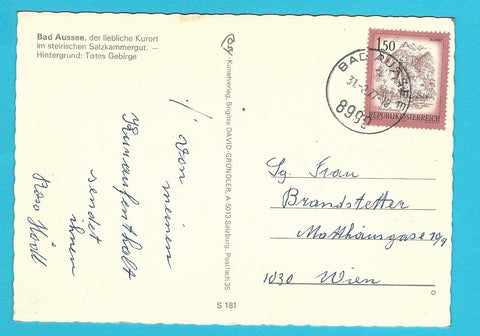 Bad Aussee, der liebliche Kurort
im steirischen Salzkammergut. —
Hintergrund: Totes Gebirge
Cosy-Kunstverlag, Brigitte DAVID-GRÜNDLER, A-5013 Salzburg, Postfach 35
S 181
Von meinen
Kuraufenthalt
sendet
ihnen
1.50
REPUBLIK ÖSTERREICH
BAD AUSSEE
8990
Sg. Frau
Brandstetter
Matthäusgasse
1030 Wien